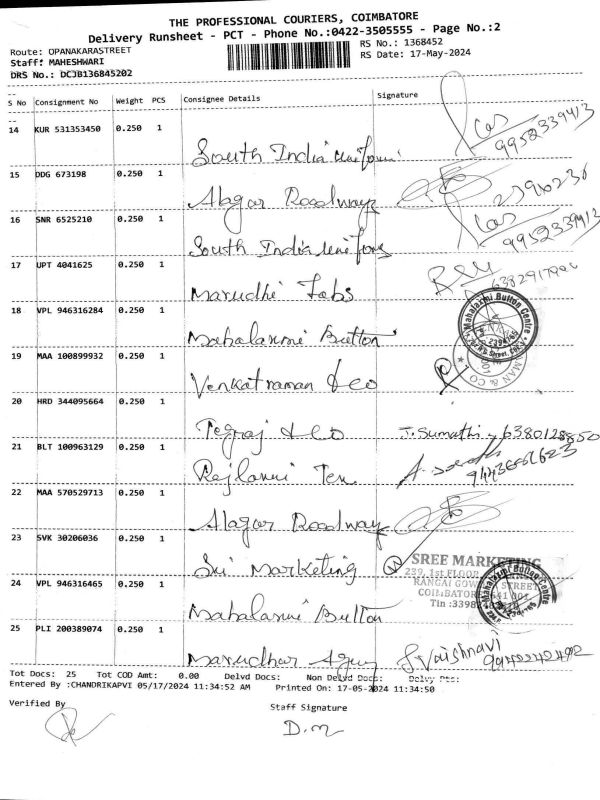 THE PROFESSIONAL COURIERS, COIMBATORE
Delivery Runsheet - PCT - Phone No.:0422-3505555 - Page No.:2
Route: OPANAKARASTREET
RS No.: 1368452
Staff: MAHESHWARI
RS Date: 17-May-2024
DRS No.: DCJB136845202
S No Consignment No Weight PCS Consignee Details Signature
14 KUR 531353450 0.250 1 South India Uniforms 9952339413
15 DDG 673198 0.250 1 Alagar Roadways
16 SNR 6525210 0.250 1 South India Uniforms 9952339413
17 UPT 4041625 0.250 1 Marudhi Fabs
18 VPL 946316284 0.250 1 Mahalaxmi Button
Mahalaxmi Button Centre
19 MAA 100899932 0.250 1 Venkatraman & co
20 HRD 344095664 0.250 1 & co J. Sumathi - 6380128850
21 BLT 100963129 0.250 1 Rajlaxmi Tex
22 MAA 570529713 0.250 1 Alagar Roadway
23 SVK 30206036 0.250 1 Sri Marketing
SREE MARKETING
239, 1st FLOOR
RANGAI GOW STREET
COIMBATORE 641 001
Tin :3398
24 VPL 946316465 0.250 1 Mahalaxmi Button
Mahalaxmi Button Centre
25 PLI 200389074 0.250 1 Marudhar Agency Vaishnavi
Tot Docs: 25 Tot COD Amt: 0.00 Delvd Docs: Non Delvd Docs: Delvy Pts:
Entered By :CHANDRIKAPVI 05/17/2024 11:34:52 AM Printed On: 17-05-2024 11:34:50
Verified By
Staff Signature
D.m